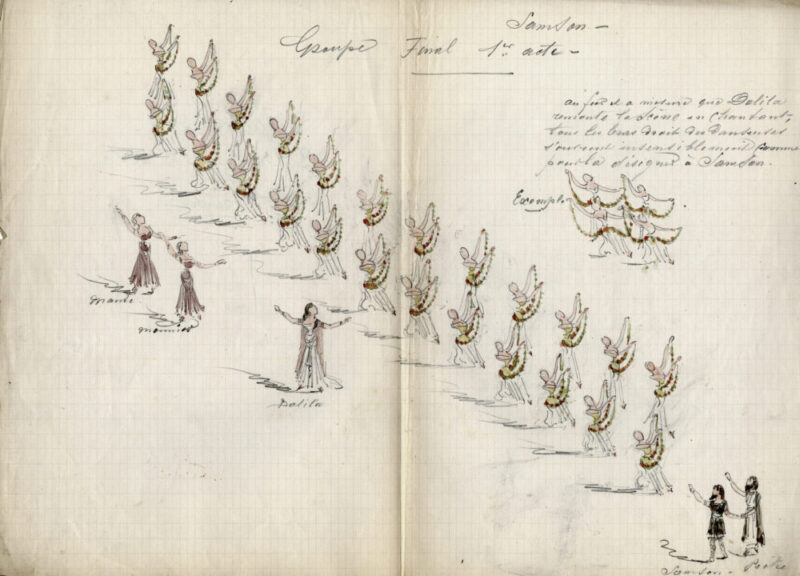 Samson -
Groupe Final 1er acte -
au fur et a mesure que Dalila
remonte la scène en chantant,
tous les bras droit des danseuses
s'ouvrent insensiblement comme
pour la désigner à Samson.
Exemple
Mante
Monnier
Dalila
Samson -